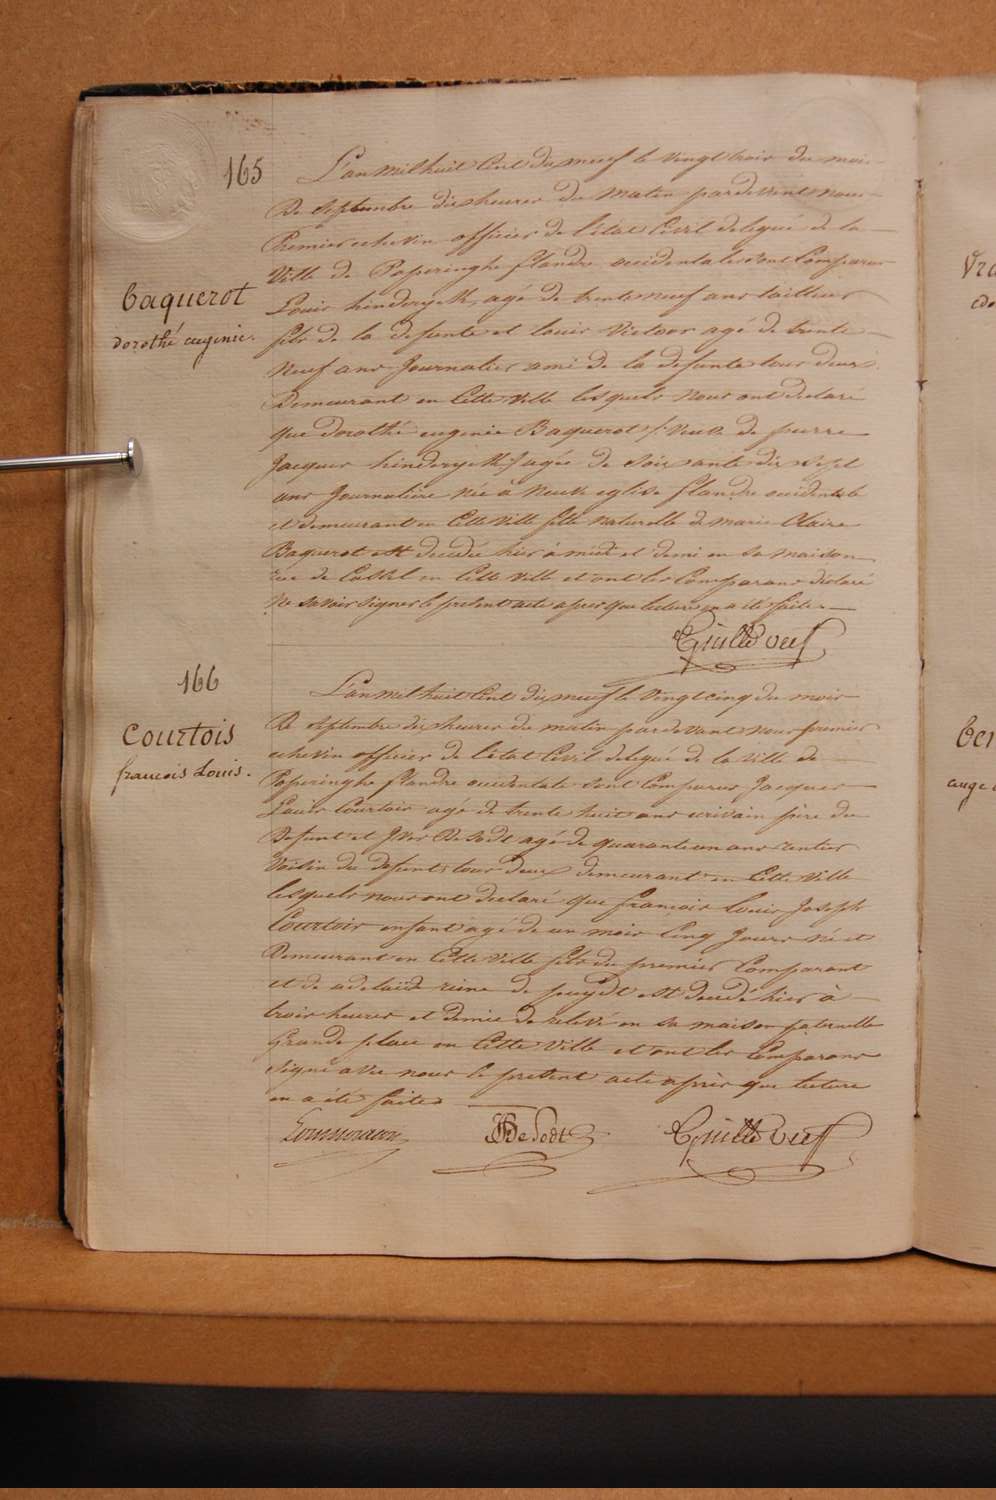 165
L'an mil huit Cent dix neuf le vingt trois du mois
De Septembre dix heures du Matin pardevant nous
Premier echevin officier de l'état Civil delegué de la
Ville de Poperinghe flandre occidentale sont Comparus
Louis hinderyckx, agé de trente neuf ans tailleur
fils de la defunte et louis Victoor agé de trente
Neuf ans Journalier ami de la defunte tous deux
Demeurant en Cette Ville lesquels Nous ont declaré
que dorothé eugenie Baquerot /: Veuve de pierre
Jacques hinderyckx :/ agée de Soixante dix Sept
ans Journalière née à Neuve eglise flandre occidentale
et demeurant en Cette Ville fille naturelle de marie Claire
Baquerot est decedée hier à midi et demi en sa maison
rue de Cassel en Cette Ville et ont les Comparans declaré
Ne savoir signer le present acte apres que lecture en a été faite.
Baquerot
dorothé eugenie.
166
L'an mil huit Cent dix neuf le Vingt cinq du mois
De Septembre dix heures du matin pardevant nous premier
echevin officier de l'etat Civil delegué de la Ville de
Poperinghe flandre occidentale sont Comparus Jacques
Louis Courtois agé de trente huit ans ecrivain père du
Defunt et Yves De Sodt agé de quarante un ans rentier
Voisin du defunt tous deux demeurant en Cette Ville
lesquels nous ont declaré que françois Louis Joseph
Courtois enfant agé de un mois Cinq Jours né et
Demeurant en Cette Ville fils du premier Comparant
et de adelaïde reine de puydt est decedé hier à
trois heures et demie de relevé en sa maison paternelle
Grande place en Cette Ville et ont les Comparans
Signé avec nous le present acte après que lecture
en a été faite
Courtois
francois Louis.
De Sodt